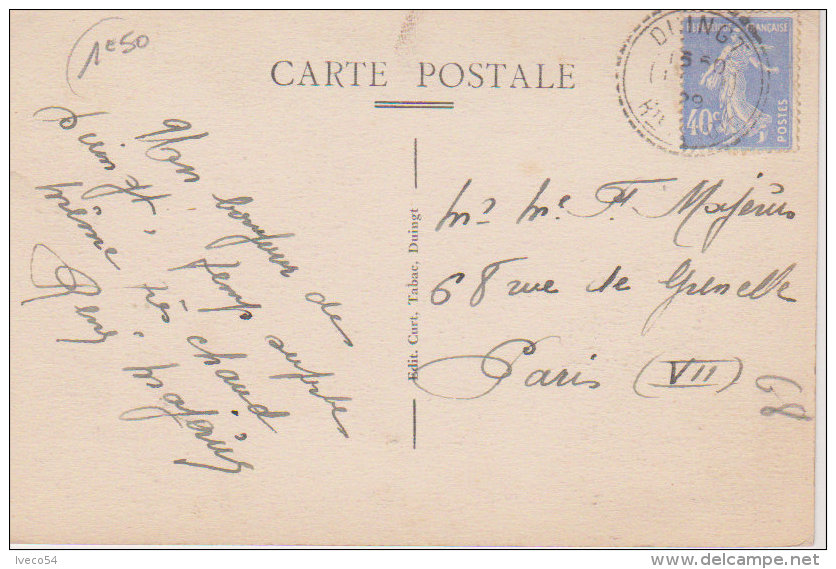 1e50
CARTE POSTALE
DUINGT
29
REPUBLIQUE FRANÇAISE
40c
POSTES
Un bonjour de
Duingt, temps superbe
même très chaud
René Majérus
Edit. Curt, Tabac, Duingt
Mr Me F. Majérus
68 rue de Grenelle
Paris (VII)
68
Iveco54
delcampe.net